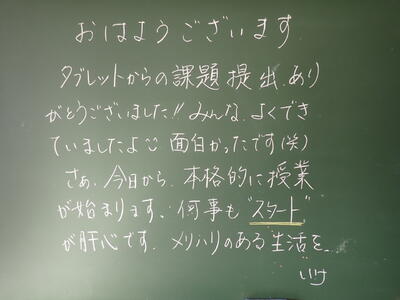 おはようございます
タブレットからの課題提出、あり
がとうございました!! みんな、よくでき
ていましたよ☺ 面白かったです(笑)
さぁ、今日から、本格的に授業
が始まります、何事も“スタート”
が肝心です。メリハリのある生活を…
いけ